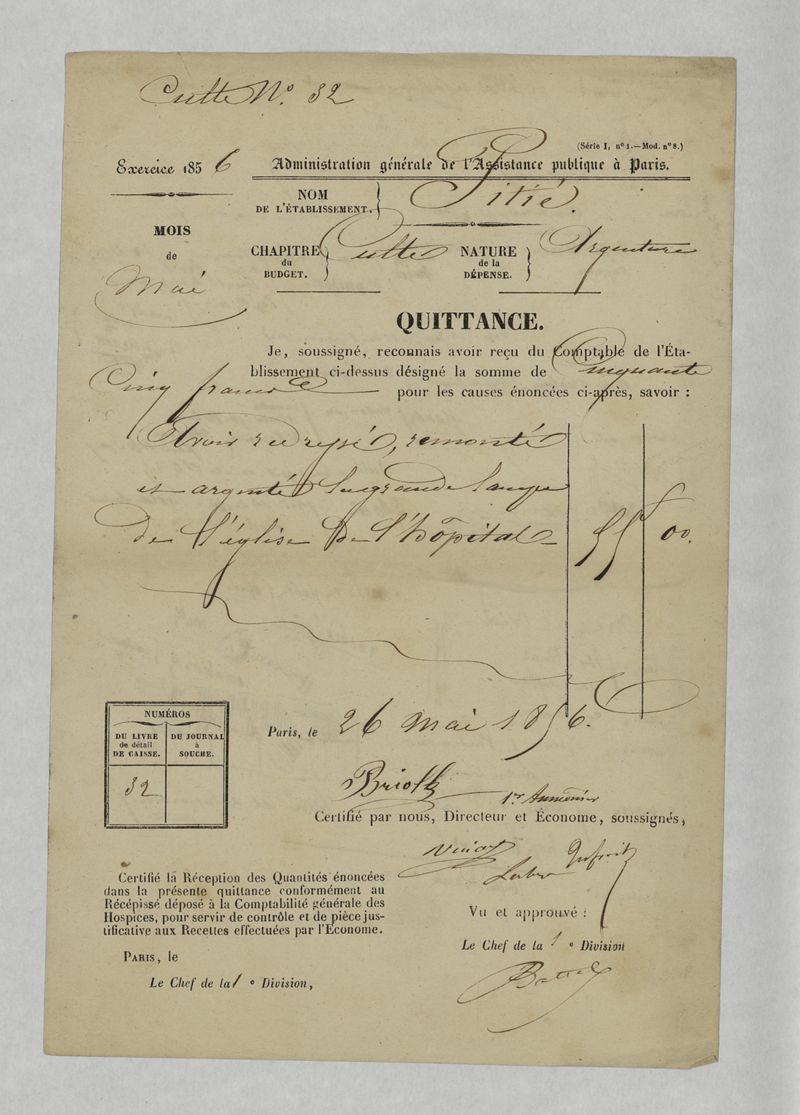 Culte N.° 32
(Série I, n° 1.—Mod. n° 8.)
Exercice 1856 Administration générale de l'Assistance publique à Paris.
NOM
DE L'ÉTABLISSEMENT. Pitié.
MOIS
de
Mai
CHAPITRE
du
BUDGET. Culte
NATURE
de la
DÉPENSE. Argenture
QUITTANCE.
Je, soussigné, reconnais avoir reçu du Comptable de l'Éta-
blissement ci-dessus désigné la somme de Cinquante
Cinq francs pour les causes énoncées ci-après, savoir :
Avoir redressé, remonté
et argenté la grande lampe
de l'église de l'hôpital 55 f 00.
NUMÉROS
DU LIVRE
de détail
DE CAISSE.
DU JOURNAL
à
SOUCHE.
32
Paris, le 26 mai 1856.
1er Aumonier
Certifié par nous, Directeur et Économe, soussignés,
Certifié la Réception des Quantités énoncées
dans la présente quittance conformément au
Récépissé déposé à la Comptabilité générale des
Hospices, pour servir de contrôle et de pièce jus-
tificative aux Recettes effectuées par l'Économe.
PARIS, le
Le Chef de la 1e Division,
Vu et approuvé :
Le Chef de la 1e Division